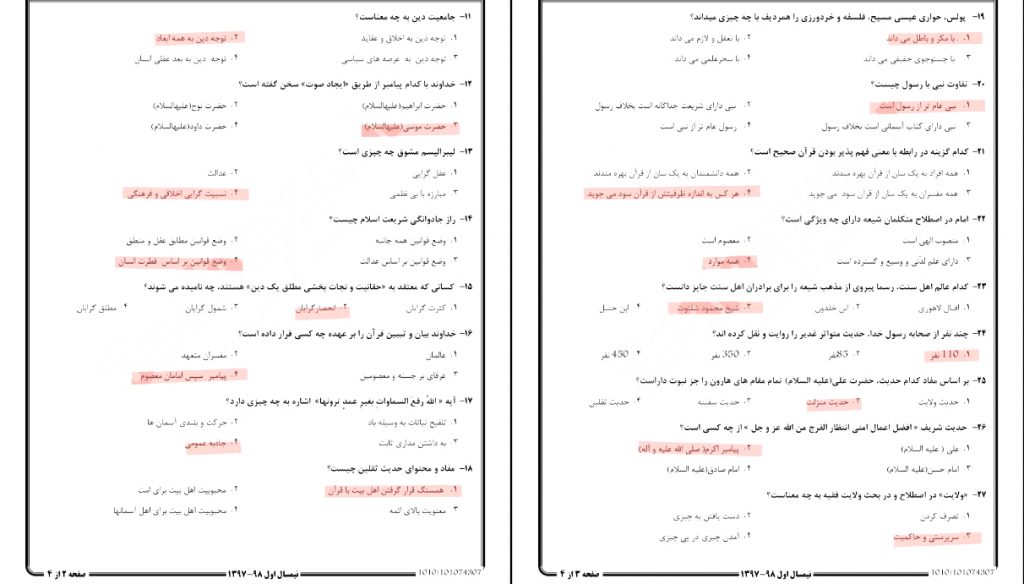 ۱۱- جامعیت دین به چه معناست؟
۱. توجه دین به اخلاق و عقاید ۲. توجه دین به همه ابعاد
۳. توجه دین به عرصه های سیاسی ۴. توجه دین به بعد عقلی انسان
۱۲- خداوند با کدام پیامبر از طریق «ایجاد صوت» سخن گفته است؟
۱. حضرت ابراهیم(علیهالسلام) ۲. حضرت نوح(علیهالسلام)
۳. حضرت موسی(علیهالسلام) ۴. حضرت داود(علیهالسلام)
۱۳- لیبرالیسم مشوق چه چیزی است؟
۱. عقل گرایی ۲. عدالت
۳. مبارزه با بی نظمی ۴. نسبیت گرایی اخلاقی و فرهنگی
۱۴- راز جاودانگی شریعت اسلام چیست؟
۱. وضع قوانین همه جانبه ۲. وضع قوانین مطابق عقل و منطق
۳. وضع قوانین بر اساس عدالت ۴. وضع قوانین بر اساس فطرت انسان
۱۵- کسانی که معتقد به «حقانیت و نجات بخشی مطلق یک دین» هستند، چه نامیده می شوند؟
۱. کثرت گرایان ۲. انحصارگرایان ۳. شمول گرایان ۴. مطلق گرایان
۱۶- خداوند بیان و تبیین قرآن را بر عهده چه کسی قرار داده است؟
۱. عالمان ۲. مفسران متعهد
۳. عرفای بر جسته و معصومین ۴. پیامبر سپس امامان معصوم
۱۷- آیه « اللهُ رفع السماوات بغیر عمدٍ ترونها» اشاره به چه چیزی دارد؟
۱. تلقیح نباتات به وسیله باد ۲. حرکت و بلندی آسمان ها
۳. به داشتن مداری ثابت ۴. جاذبه عمومی
۱۸- مفاد و محتوای حدیث ثقلین چیست؟
۱. همسنگ قرار گرفتن اهل بیت با قرآن ۲. محبوبیت اهل بیت برای امت
۳. معنویت بالای ائمه ۴. محبوبیت اهل بیت برای اهل آسمانها
1010/101074507 نیمسال اول ۹۸-۱۳۹۷ صفحه ۲ از ۴
۱۹- پولس، حواری عیسی مسیح، فلسفه و خردورزی را همردیف با چه چیزی میداند؟
۱. با مکر و باطل می داند ۲. با تعقل و لازم می داند
۳. با جستجوی حقیقی می داند ۴. با سحرعلمی می داند
۲۰- تفاوت نبی با رسول چیست؟
۱. نبی عام تر از رسول است ۲. نبی دارای شریعت جداگانه است بخلاف رسول
۳. نبی دارای کتاب آسمانی است بخلاف رسول ۴. رسول عام تر از نبی است
۲۱- کدام گزینه در رابطه با معنی فهم پذیر بودن قرآن صحیح است؟
۱. همه افراد به یک سان از قرآن بهره مندند ۲. همه دانشمندان به یک سان از قرآن بهره مندند
۳. همه مفسران به یک سان از قران سود می جوید ۴. هر کس به اندازه ظرفیتش از قرآن سود می جوید
۲۲- امام در اصطلاح متکلمان شیعه دارای چه ویژگی است؟
۱. منصوب الهی است ۲. معصوم است
۳. دارای علم لدّنی و وسیع و گسترده است ۴. همه موارد
۲۳- کدام عالم اهل سنت، رسما پیروی از مذهب شیعه را برای برادران اهل سنت جایز دانست؟
۱. اقبال لاهوری ۲. ابن خلدون ۳. شیخ محمود شلتوت ۴. ابن حنبل
۲۴- چند نفر از صحابه رسول خدا، حدیث متواتر غدیر را روایت و نقل کرده اند؟
۱. 110 نفر ۲. 85نفر ۳. 350 نفر ۴. 450 نفر
۲۵- بر اساس مفاد کدام حدیث، حضرت علی(علیه السلام) تمام مقام های هارون را جز نبوت داراست؟
۱. حدیث ولایت ۲. حدیث منزلت ۳. حدیث سفینه ۴. حدیث ثقلین
۲۶- حدیث شریف « افضل اعمال امتی انتظار الفرج من الله عز و جل » از چه کسی است؟
۱. علی ( علیه السلام) ۲. پیامبر اکرم( صلی الله علیه و آله)
۳. امام حسن(علیه السلام) ۴. امام صادق(علیه السلام)
۲۷- «ولایت» در اصطلاح و در بحث ولایت فقیه به چه معناست؟
۱. تصرف کردن ۲. دست یافتن به چیزی
۳. سرپرستی و حاکمیت ۴. آمدن چیزی در پی چیزی
1010/101074507 نیمسال اول ۹۸-۱۳۹۷ صفحه ۳ از ۴